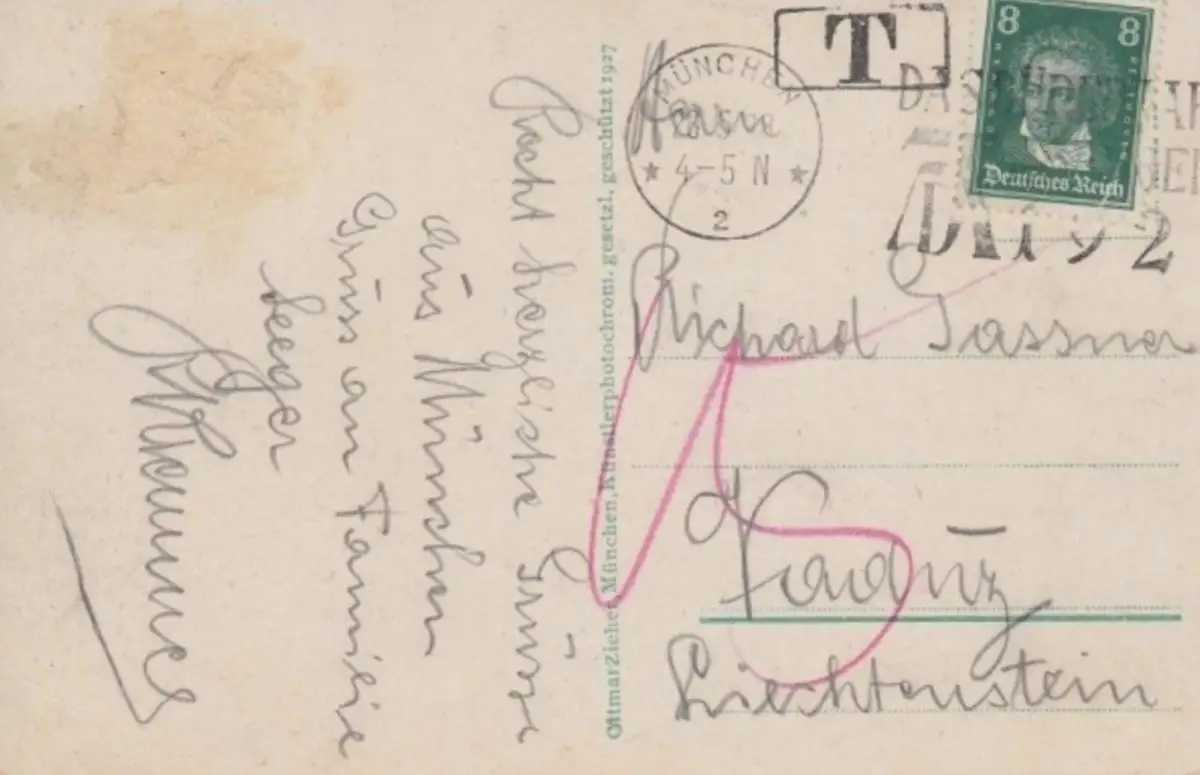 Recht herzliche Grüsse
aus München
Gruss an Familie
Seeger
Ottmar Zieher, München, Künstlerphotochrom, gesetzl. geschützt 1927
MÜNCHEN
4-5 N
2
T
8 8
Deutsches Reich
Richard
Vaduz
Liechtenstein
15